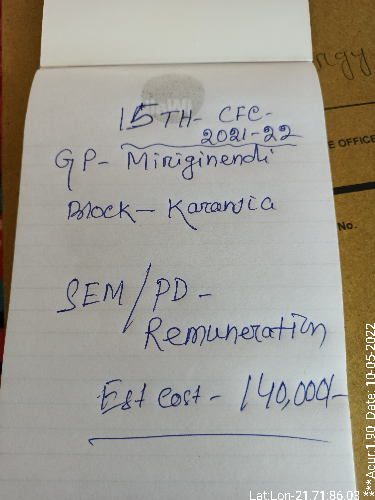 15TH- CFC-
2021-22
GP- Miriginendi
Block- Karanjia
SEM/PD-
Remuneration
Est cost- 140,000/-
E OFFICE
No.
Lat:Lon-21.71:86.03 ***Acur:1.90 Date:10-05-2022